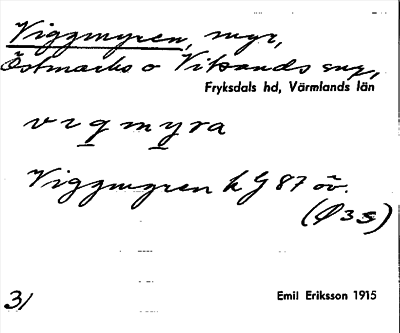 Viggmyren, myr,
Östmarks o Vitsands snr,
Fryksdals hd, Värmlands län
vıgmyra
Viggmyren k G 87 öv.
(Ø3s)
31 Emil Eriksson 1915